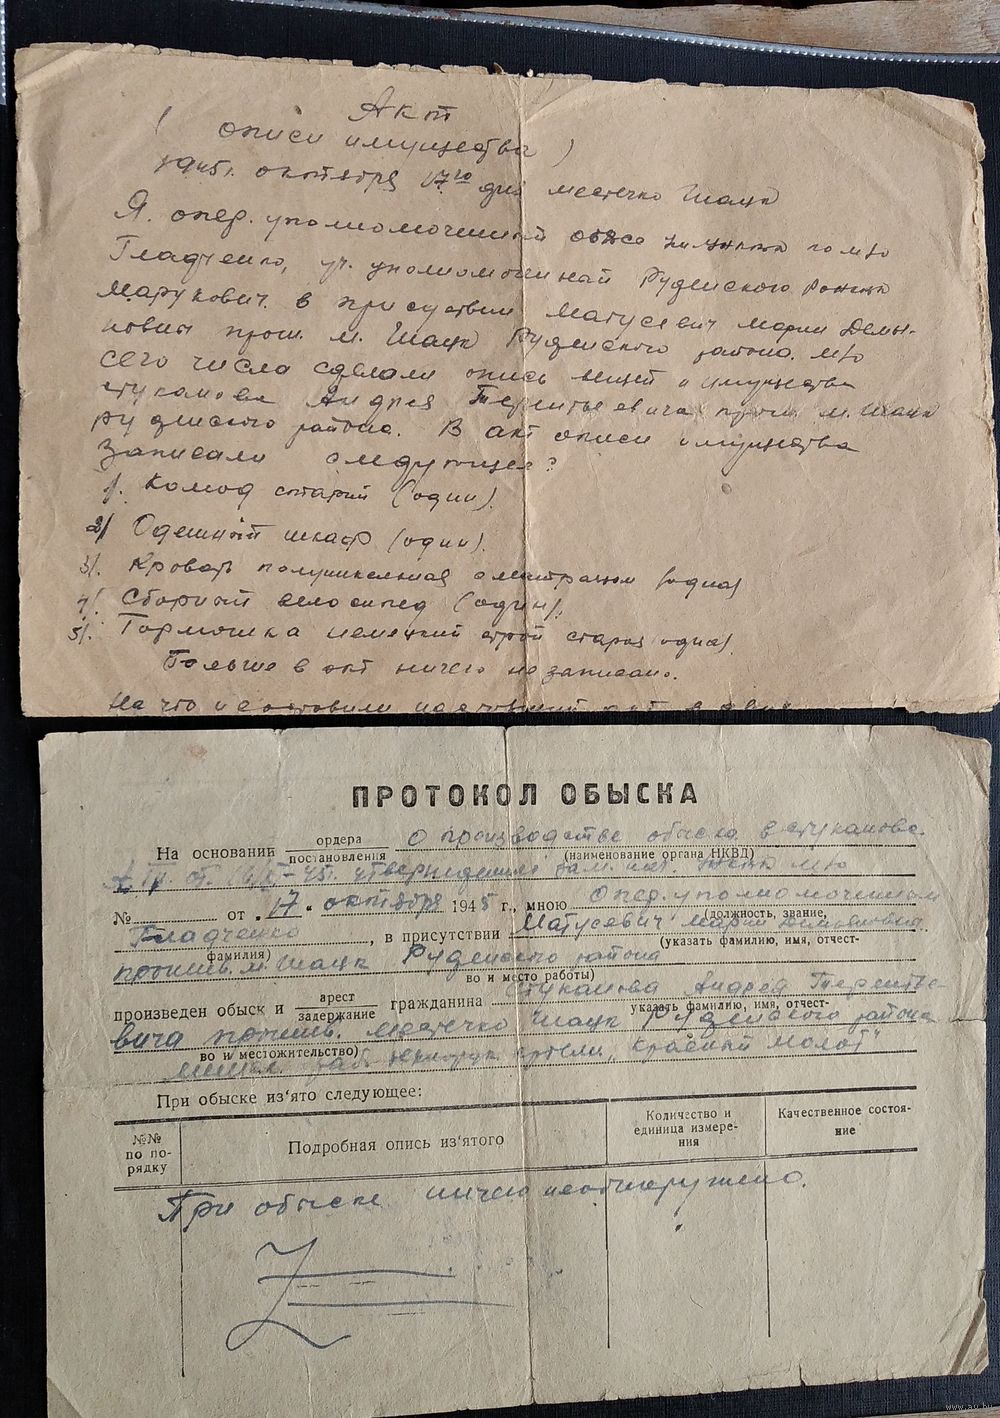 Акт
( описи имущества )
1945г. октября 17го дня местечко Шацк
Я. опер. уполномоченный
Гладченко, уч. уполномоченный Руденского
Марукович. в присуствии Матусевич Марии Демья-
новны прож. м. Шацк Руденского района. м/о
сего числа сделали опись вещей и имущества
Стуканова Андрея Терентьевича прож. м. Шацк
Руденского района. В акт описи имущества
Записали следующее?
1/. Комод старый (один).
2/ Одежный шкаф (один).
3/. Кровать полуникелиная с матрацом (одна)
4/. Сборный велосипед (один).
5/. Гормошка немецкий строй старая одна).
Больше в акт ничего не записано.
На что и составили настоящий акт в
ПРОТОКОЛ ОБЫСКА
На основании ордера постановления о производстве обыска в Стуканова
(наименование органа НКВД)
А. Тр. от утвержденный зам. нач. м/о
№ от „17“ октября 1945 г., мною Опер. уполномоченным
(должность, звание,
Гладченко, в присутствии Матусевич Марии Демьяновны
фамилия) (указать фамилию, имя, отчест-
прожив. м. Шацк Руденского района
во и место работы)
произведен обыск и арест задержание гражданина Стуканова Андрея Теренть-
указать фамилию, имя, отчест-
евича прожив. местечко Шацк Руденского района
во и местожительство)
Минск. артели „Красный молот“
При обыске из‘ято следующее:
№№ по по-рядку
Подробная опись из‘ятого
Количество и единица измере-ния
Качественное состоя-ние
При обыске ничего необнаружено.
www.ay.by